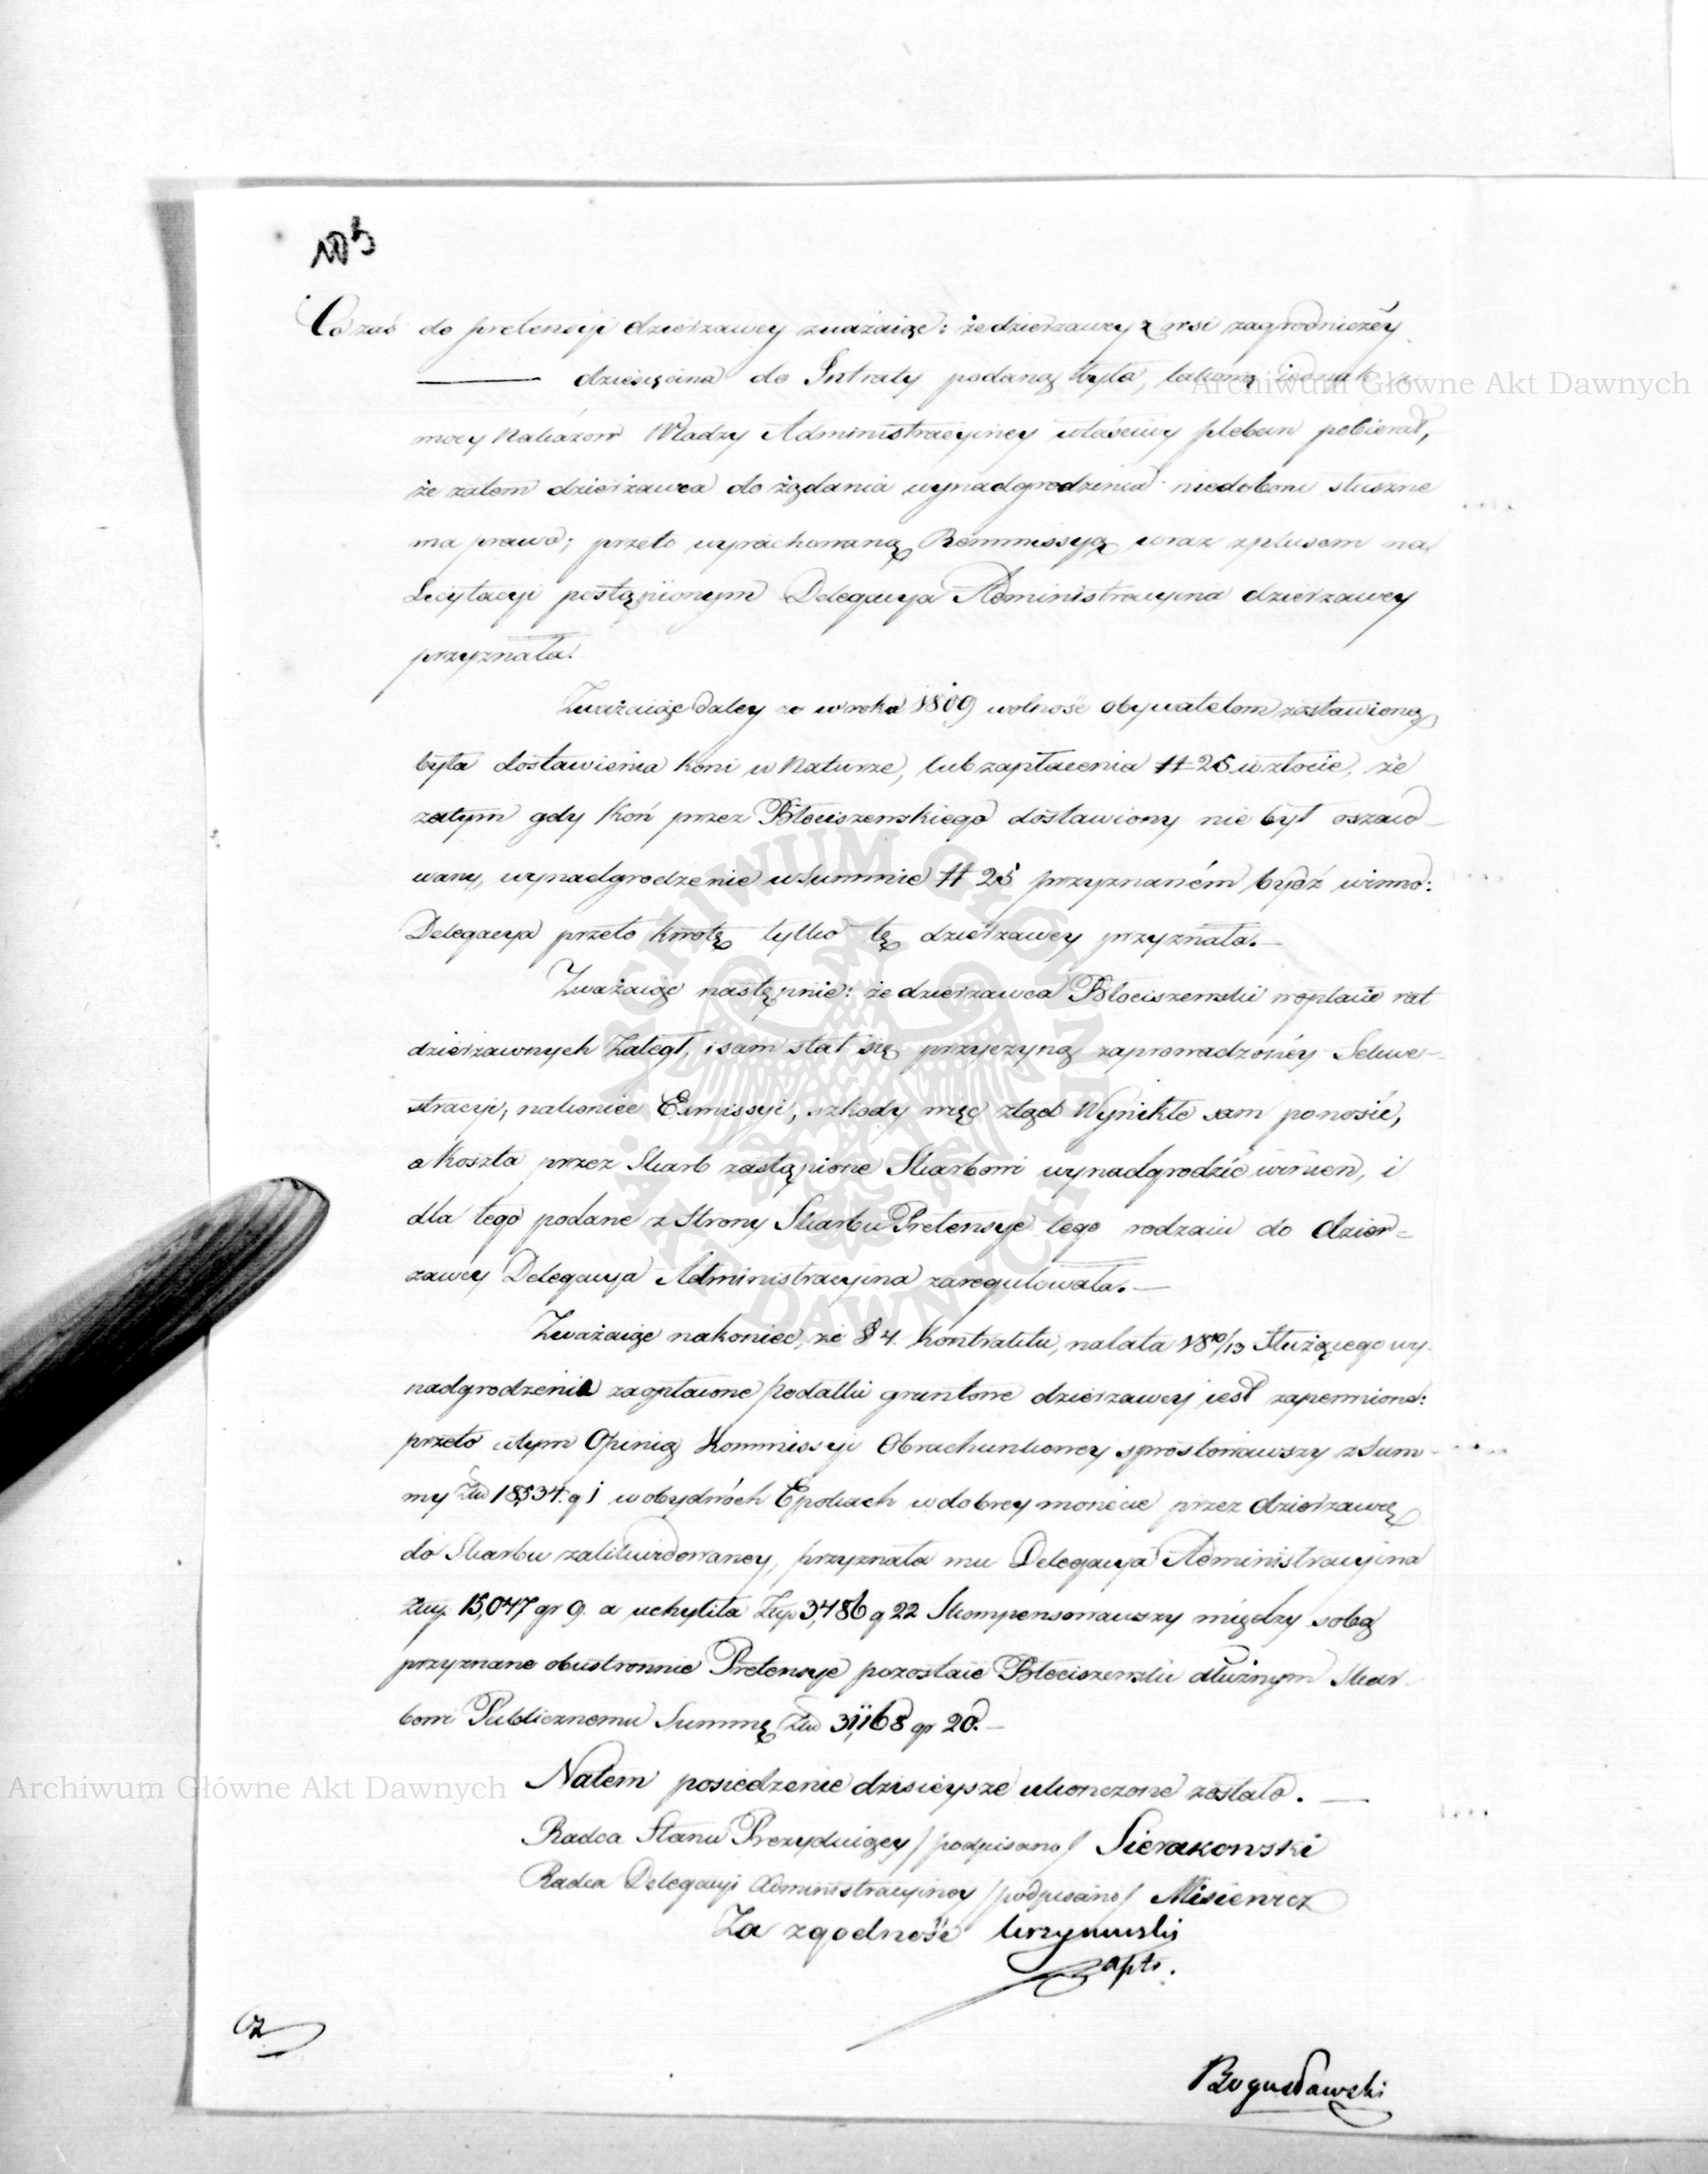 103
Co zaś do pretensyi dzierzawcy zważaiąc: że dzierzawcy z wsi zagrodniczéy
dziesięcina do Intraty podaną była, takową iednak z
mocy Nakazow Władzy Administracyiney właściwy pleban pobierał,
że zatem dzierżawca do żądania wynadgrodzenia niedoboru słuszne
ma prawo; przeto wyrachowaną Remmissyą wraz z plusem na
Licytacyi postąpionym Delegacya Administracyina dzierzawcy
przyznała.
Zważaiąc daley że w roku 1809 wolność obywatelom zostawioną
była dostawienia Koni w Naturze, lub zapłacenia # 25 w złocie, że
zatym gdy Koń przez Błociszewskiego dostawiony nie był oszaco-
wany, wynadgrodzenie w Summie # 25 przyznaném bydź winno:
Delegacya przeto kwotę tylko tę dzierzawcy przyznała.—
Zważaiąc następnie: że dzierzawca Błociszewski w opłacie rat
dzierzawnych Zaległ, i sam stał się przyczyną zaprowadzonéy Sekwe-
stracyi, nakoniec Exmissyi, szkody więc ztąd Wynikłe sam ponosić,
a Koszta przez Skarb zastąpione Skarbowi wynadgrodzić winien, i
dla tego podane z Strony Skarbu Pretensye tego rodzaiu do dzier=
zawcy Delegacya Administracyina zaregulowała.—
Zważaiąc nakoniec, że § 4. Kontraktu, na lata 18 10/13 Służącego wy-
nadgrodzenie za opłacone podatki gruntowe dzierzawcy iest zapewnione:
przeto w tym Opinią Kommissyi Obrachunkowey sprostowawszy z Sum-
my Złp 18,534. g 1 w obydwóch Epokach w dobrey monecie przez dzierzawcę
do Skarbu zalikwidowaney, przyznała mu Delegacya Administracyina
Złp. 15,047 gr 9. a uchyliła Złp 3,486 g 22 Skompensowawszy między sobą
przyznane obustronnie Pretensye pozostaie Błociszewski dłużnym Skar-
bowi Publicznemu Summę Złp 31,168 gr 20.—
Na tem posiedzenie dzisieysze ukonczone zostało.—
Radca Stanu Prezyduiący /podpisano/ Sierakowski
Radca Delegacyi Administracyiney /podpisano/ Misiewicz
Za zgodność
Bogusławski
Archiwum Główne Akt Dawnych
Archiwum Główne Akt Dawnych
ARCHIWUM GŁÓWNE AKT DAWNYCH